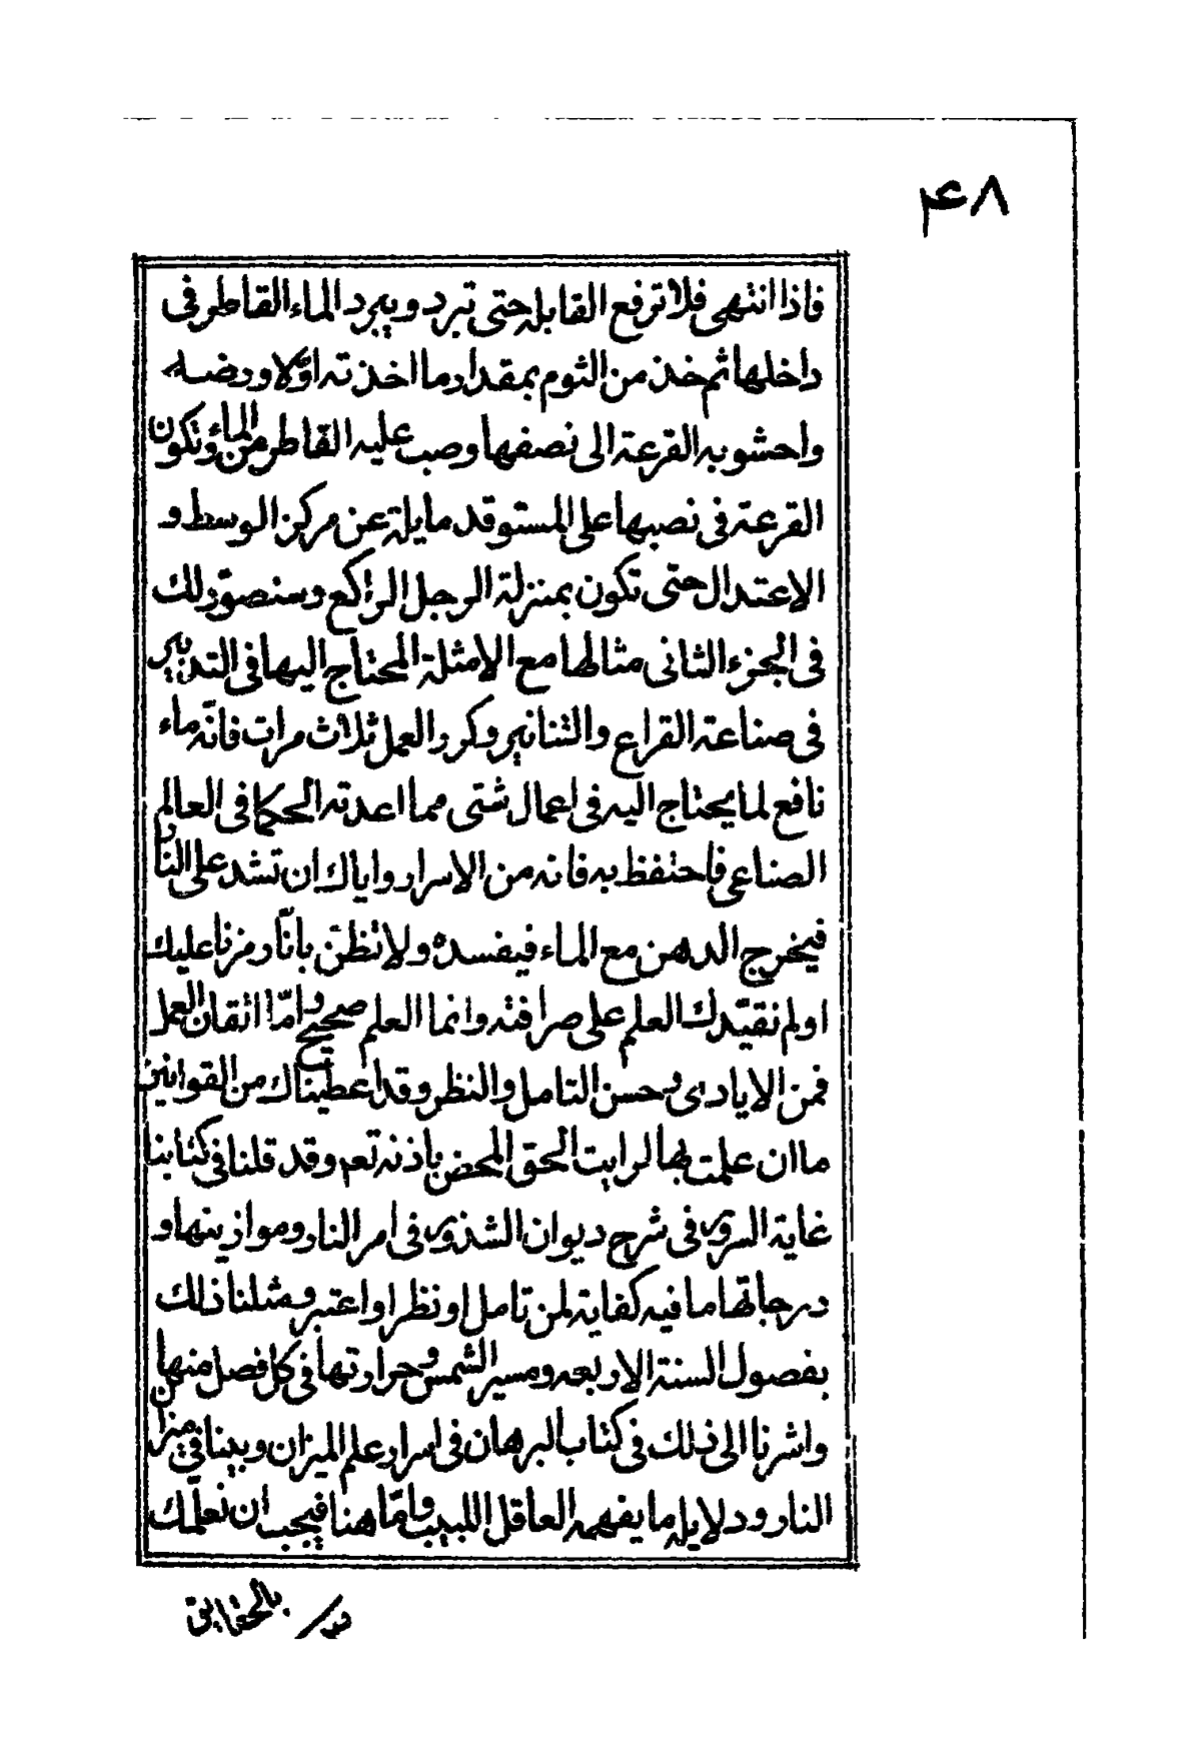 ۴۸
فاذا انتهى فلا ترفع القابلة حتى تبرد ويبرد الماء القاطر فى
داخلها ثم خذ من الثوم بمقدار ما اخذته اوّلا ورضه
واحشو به القرعة الى نصفها وصب عليه القاطر من الماء وتكون
القرعة فى نصبها على المستوقد مايلة عن مركز الوسط و
الاعتدال حتى تكون بمنزلة الرجل الراكع وسنصوّر لك
فى الجزء الثانى مثالها مع الامثلة المحتاج اليها فى التدبير
فى صناعة القراع والتنانير وكرر العمل ثلاث مرات فانّه ماء
نافع لما يحتاج اليه فى اعمال شتى مما اعدته الحكما فى العالم
الصناعى فاحتفظ به فانه من الاسرار واياك ان تشد على النار
فيخرج الدهن مع الماء فيفسده ولا تظنّ بانّا رمزنا عليك
اولم نقيّد لك العلم على صرافته وانما العلم صحيح وامّا اتقان العمل
فمن الايادى وحسن التامل والنظر وقد اعطيناك من القوانين
ما ان علمت بها لرايت الحق المحض باذنه تعم وقد قلنا فى كتابنا
غاية السرور فى شرح ديوان الشذور فى امر النار وموازينها و
درجاتها ما فيه كفاية لمن تامل او نظر او اعتبر ومثلنا ذلك
بفصول السنة الاربعه ومسير الشمس وحرارتها فى كل فصل منها
واشرنا الى ذلك فى كتاب البرهان فى اسرار علم الميزان وبينا فى ميزان
النار ودلايله ما يفهمه العاقل اللبيب وامّا هنا فيجب ان نعلّمك
بالحقايق